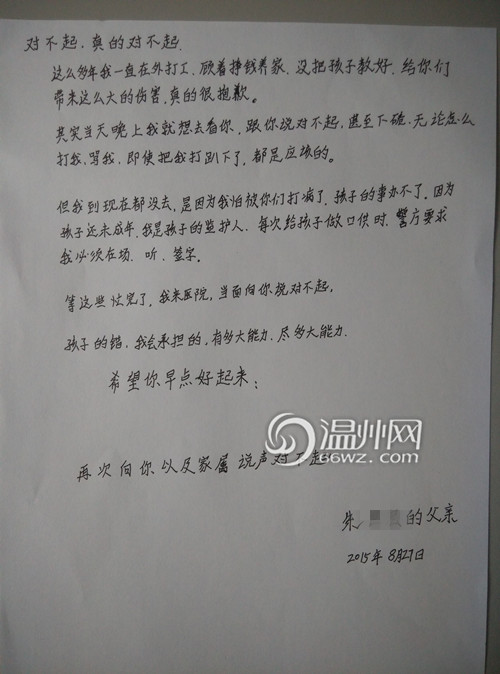 对不起,真的对不起.
这么多年我一直在外打工,顾着挣钱养家,没把孩子教好,给你们
带来这么大的伤害,真的很抱歉。
其实当天晚上我就想去看你,跟你说对不起,甚至下跪,无论怎么
打我,骂我,即使把我打趴下了,都是应该的。
但我到现在都没去,是因为我怕被你们打病了,孩子的事办不了。因为
孩子还未成年,我是孩子的监护人,每次给孩子做口供时,警方要求
我必须在场,听,签字。
等这些忙完了,我来医院,当面向你说对不起,
孩子的错,我会承担的,有多大能力,尽多大能力.
希望你早点好起来;
温州网
66WZ.COM
再次向你以及家属说声对不起
朱 的父亲
2015年8月27日